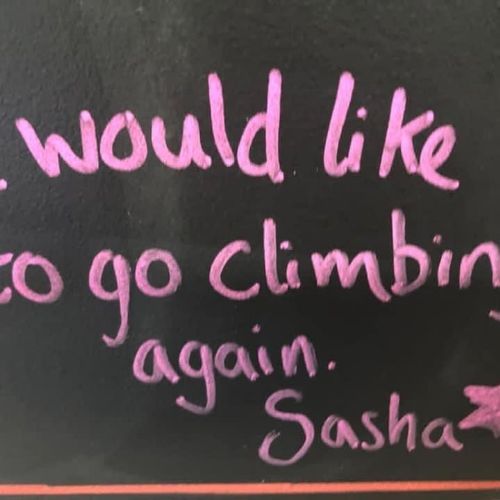 I would like
to go climbing
again.
Sasha